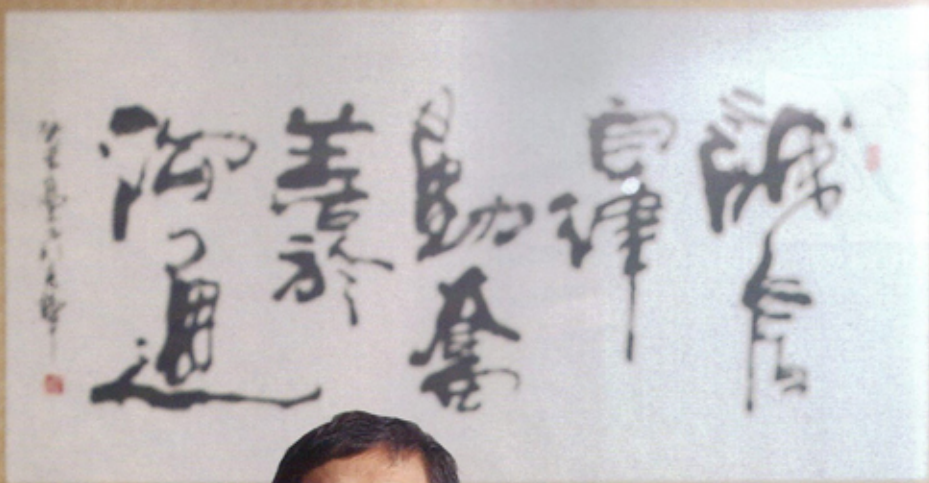 誠信
自律
勤奮
善於
溝通